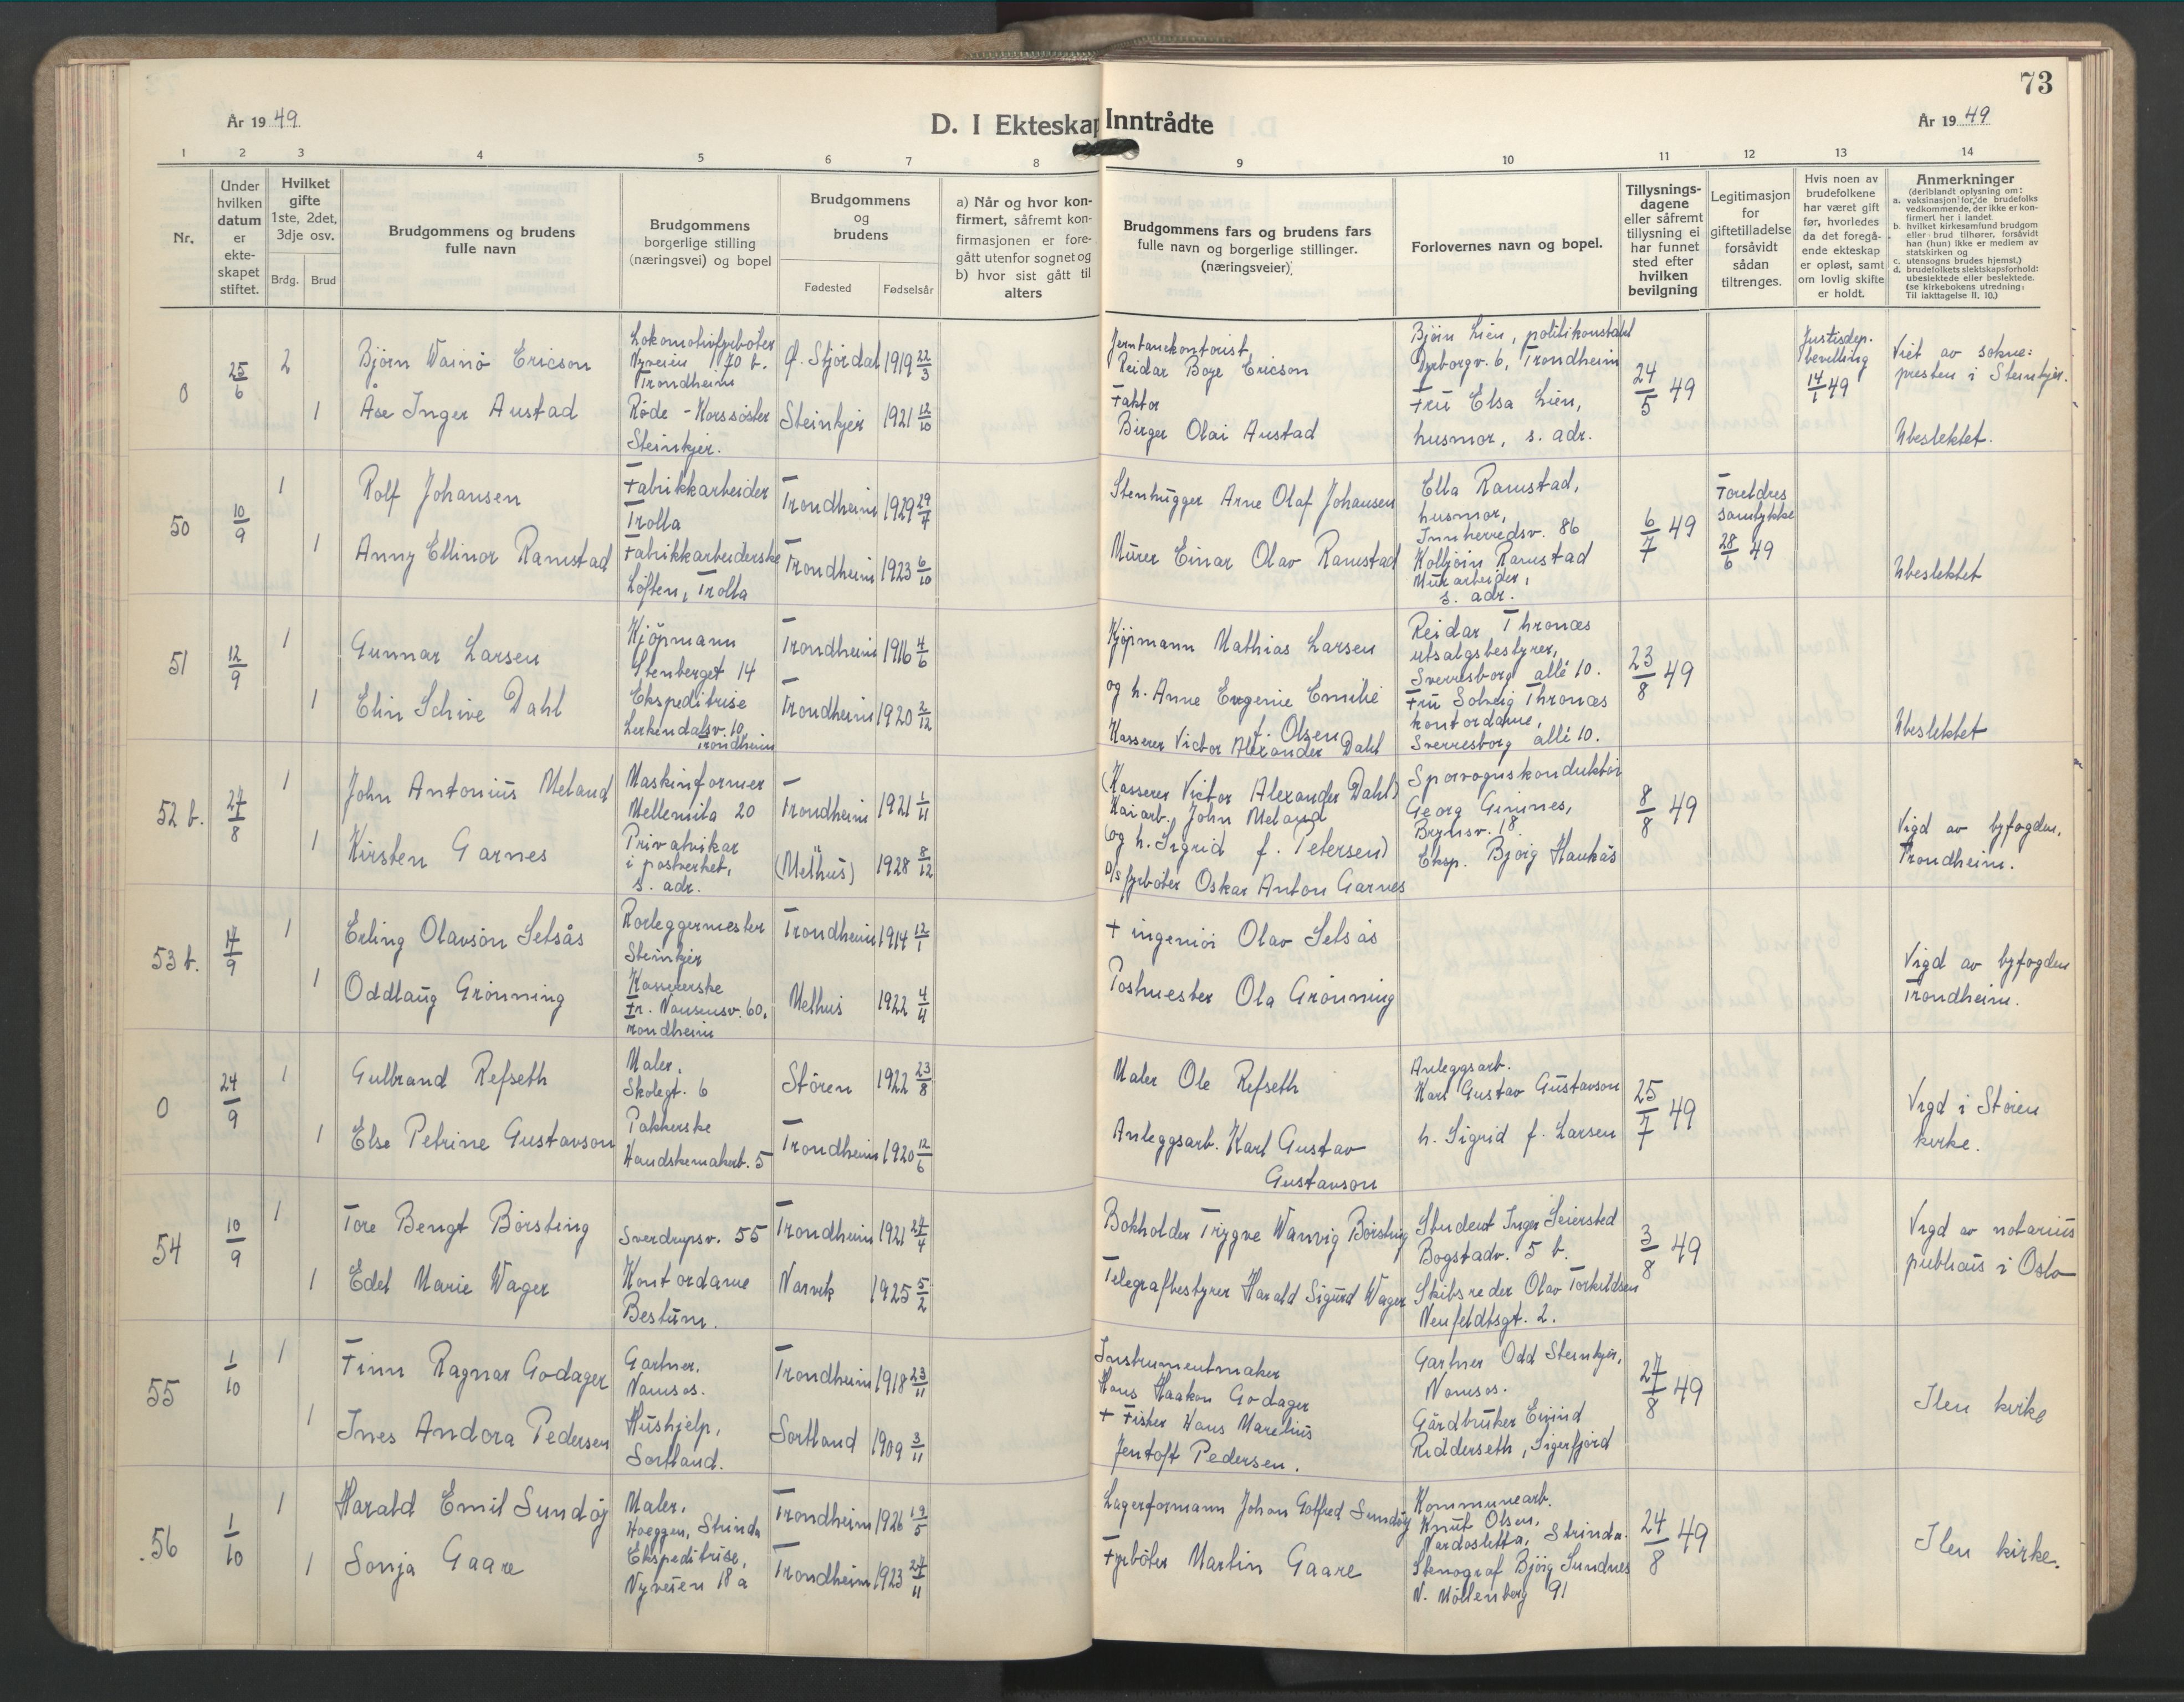 73
År 19 49
D. I Ekteskap Inntrådte
År 19 49
1 2 3 4 5 6 7 8 9 10 11 12 13 14
Nr.
Under hvilken datum er ekteskapet stiftet.
Hvilket gifte 1ste, 2det, 3dje osv.
Brdg. Brud
Brudgommens og brudens fulle navn
Brudgommens borgerlige stilling (næringsvei) og bopel
Brudgommens og brudens
Fødested Fødselsår
a) Når og hvor konfirmert, såfremt konfirmasjonen er foregått utenfor sognet og b) hvor sist gått til alters
Brudgommens fars og brudens fars fulle navn og borgerlige stillinger. (næringsveier).
Forlovernes navn og bopel.
Tillysningsdagene eller såfremt tillysning ei har funnet sted efter hvilken bevilgning
Legitimasjon for giftetilladelse forsåvidt sådan tiltrenges.
Hvis noen av brudefolkene har været gift før, hvorledes da det foregående ekteskap er opløst, samt om lovlig skifte er holdt.
Anmerkninger
(deriblandt oplysning om:
a. vaksinasjon for de brudefolks vedkommende, der ikke er konfirmert her i landet
b. hvilket kirkesamfund brudgom eller brud tilhører, forsåvidt han (hun) ikke er medlem av statskirken og
c. utensogns brudes hjemst.)
d. brudefolkets slektskapsforhold: ubeslektede eller beslektede.
(se kirkebokens utredning: Til iakttagelse II. 10.)
0 25/6 2 Bjørn Wainö Ericson
Lokomotivfyrbøter
Nyveien 170 b.
Trondheim
Ø. Stjördal 1919 22/3
Jernbanekontorist
Reidar Boye Ericson
Bjørn Lien, politikonstabel
Dyrborgv. 6, Trondheim
24/5 49
Justisdep.
bevilling
14/1 49
Viet av sokne:
presten i Steinkjer.
1 Åse Inger Austad
Røde-Korssøster
Steinkjer.
Steinkjer 1921 12/10
Faktor
Birger Olai Austad
Frü Elsa Lien,
husmor, s. adr.
Ubeslektet.
50 10/9 1 Rolf Johansen
Fabrikkarbeider
Trolla
Trondheim 1929 29/7
Stenhugger Arne Olaf Johansen
Ella Ramstad,
husmor,
Innherredsv. 86
6/7 49
Foreldres
samtykke
28/6 49
1 Anny Ellinor Ramstad
Fabrikkarbeiderske
Løften, Trolla
Trondheim 1923 6/10
Mürer Einar Olav Ramstad
Kolbjørn Ramstad
Mürarbeider,
s. adr.
Ubeslektet
51 12/9 1 Gunnar Larsen
Kjöpmann
Stenberget 14
Trondheim 1916 4/6
Kjøpmann Mathias Larsen
og h. Anne Eugenie Emilie
f. Olsen
Reidar Thronæs
utsalgsbestyrer,
Sverresborg allé 10.
23/8 49
1 Elin Schive Dahl
Ekspeditrise
Lerkendalsv. 10,
Trondheim
Trondheim 1920 2/12
Kasserer Victor Alexander Dahl
Frü Solveig Thronæs
kontordame,
Sverresborg allé 10.
Ubeslektet
52 b. 27/8 1 John Antoniüs Meland
Maskinformer
Mellemila 20
Trondheim 1921 1/11
(Kasserer Victor Alexander Dahl)
Kaiarb. John Meland
(og h. Sigrid f. Petersen)
Sporvognskonduktør
Georg Gimnes,
Brynsv. 18
8/8 49
1 Kirsten Garnes
Privatvikar
i postverket,
s. adr.
(Melhüs) 1928 8/12
D/s fyrbøter Oskar Anton Garnes
Eksp. Bjørg Haukås
Vigd av byfogden,
Trondheim.
53 b. 17/9 1 Erling Olavsøn Setsås
Rørleggermester
Steinkjer
Trondheim 1914 12/1
+ ingeniør Olav Setsås
1 Oddlaüg Grönning
Kassererske
Fr. Nansensv. 60,
Trondheim
Melhüs 1922 4/4
Postmester Ola Grönning
Vigd av byfogden
Trondheim.
0 24/9 1 Gulbrand Refseth
Maler,
Skolegt. 6
Stören 1922 23/8
Maler Ole Refseth
Anleggsarb.
Karl Gustav Güstavson
25/7 49
1 Else Petrine Gustavson
Pakkerske
Handskemakerb. 5
Trondheim 1920 12/6
Anleggsarb. Karl Gustav
Gustavson
h. Sigrid f. Larsen
Vigd i Stören
kirke.
54 10/9 1 Tore Bengt Börsting
Sverdrupsv. 55
Trondheim 1921 24/4
Bokholder Trygve Wanvig Børsting
Student Inger Seiersted
Bogstadv. 5 b.
3/8 49
1 Edel Marie Wager
Kontordame
Bestüm.
Narvik 1925 5/2
Telegrafbestyrer Harald Sigurd Wager
Skibsreder Olav Torkildsen
Neufeldtsgt. 2.
Vigd av notariüs
publicüs i Oslo
55 1/10 1 Finn Ragnar Godager
Gartner.
Namsos.
Trondheim 1918 23/11
Instrumentmaker
Hans Haakon Godager
Gartner Odd Steinkjer,
Namsos.
27/8 49
1 Ines Andora Pedersen
Hüshjelp,
Sortland.
Sortland 1909 3/11
+ Fisker Hans Mareliüs
Jentoft Pedersen.
Gårdbrüker Eivind
Ridderseth, Sigerfjord
Ilen kirke
56 1/10 1 Harald Emil Sundøy
Maler.
Hoeggen, Strinda
Trondheim 1926 19/5
Lagerformann Johan Gotfred Sundøy
Kommunearb.
Knüt Olsen,
Nardosletta, Strinda.
24/8 49
1 Sonja Gaare
Ekspeditrise,
Nyveien 18 a
Trondheim 1923 27/11
Fyrbøter Martin Gaare
Stenograf Bjørg Sundnes
N. Möllenberg 91
Ilen kirke.